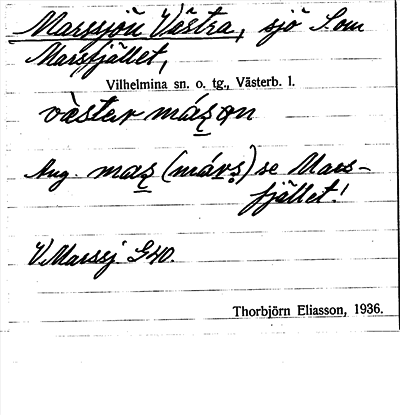 Marssjön Västra, sjö S. om
Marsfjället,
Vilhelmina sn. o. tg., Västerb. l.
väster
Ang. (márs) se Mars-
fjället!
V. Marssj. G40.
Thorbjörn Eliasson, 1936.